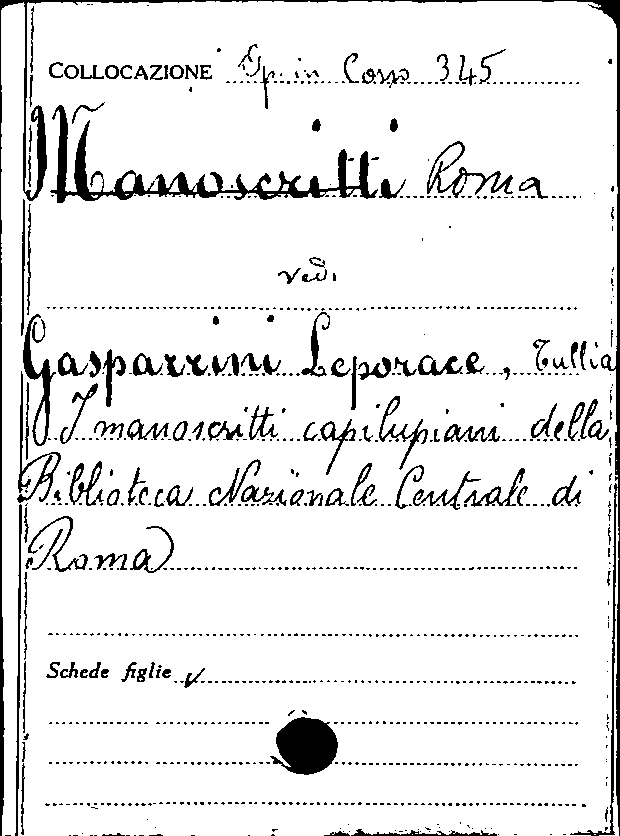 COLLOCAZIONE Op. in Corso 345
Manoscritti Roma
vedi
Gasparrini Leporace, Tullia
I manoscritti capilupiani della
Biblioteca Nazionale Centrale di
Roma
Schede figlie V